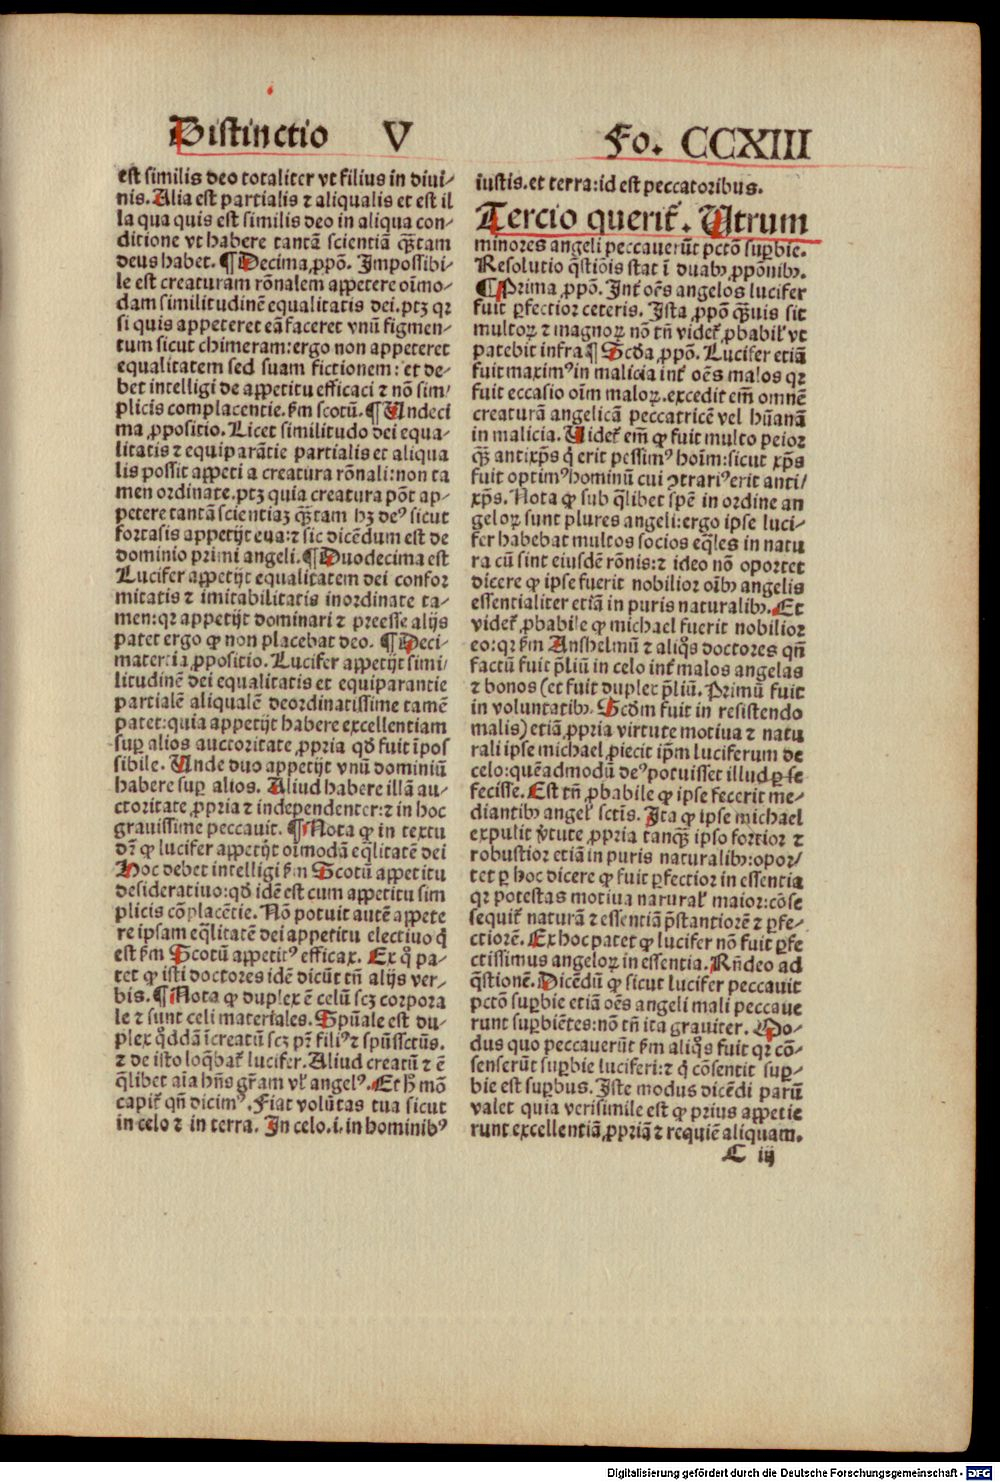 Distinctio V Fo. CCXIII
est similis deo totaliter vt filius in diui-
nis. Alia est partialis ⁊ aliqualis et est il
la qua quis est similis deo in aliqua con-
ditione vt habere tantā scientiā q̄ꝫtam
deus habet. ¶ Decima ꝓpō. Impossibi-
le est creaturam rōnalem appetere oīmo-
dam similitudinē equalitatis dei. ptꝫ qꝛ
si quis appeteret eā faceret vnū figmen-
tum sicut chimeram: ergo non appeteret
equalitatem sed suam fictionem: et de-
bet intelligi de appetitu efficaci ⁊ nō sim/
plicis complacentie. ẜm scotū. ¶ Undeci
ma ꝓpositio. Licet similitudo dei equa-
litatis ⁊ equiparātie partialis et aliqua
lis possit appeti a creatura rōnali: non ta
men ordinate. ptꝫ quia creatura pōt ap-
petere tantā scientiaꝫ q̄ꝫtam hꝫ deꝰ sicut
fortasis appetijt eua: ⁊ sic dicēdum est de
dominio primi angeli. ¶ Duodecima est
Lucifer appetijt equalitatem dei confor
mitatis ⁊ imitabilitatis inordinate ta-
men: qꝛ appetijt dominari ⁊ preesse alijs
patet ergo ꝙ non placebat deo. ¶ Deci-
matercia ꝓpositio. Lucifer appetijt simi/
litudinē dei equalitatis et equiparantie
partialē aliqualē deordinatissime tamē
patet: quia appetijt habere excellentiam
suꝑ alios auctoritate ꝓpria qd̄ fuit īpos
sibile. Unde duo appetijt vnū dominiū
habere suꝑ alios. Aliud habere illā au-
ctoritate ꝓpria ⁊ independenter: ⁊ in hoc
grauissime peccauit. ¶ Nota ꝙ in textu
dr̄ ꝙ lucifer appetijt oīmodā eq̄litatē dei
Hoc debet intelligi ẜm Scotū appetitu
desideratiuo: qd̄ idē est cum appetitu sim
plicis cōplacētie. Nō potuit autē appete
re ipsam eq̄litatē dei appetitu electiuo q̄
est ẜm Scotū appetitꝰ efficax. Ex q̄ pa-
tet ꝙ isti doctores idē dicūt tn̄ alijs ver-
bis. ¶ Nota ꝙ duplex ē celū scꝫ corpora
le ⁊ sunt celi materiales. Spūale est du-
plex q̇ddā īcreatū scꝫ pr̄ filiꝰ ⁊ spūssctūs.
⁊ de isto loq̄bat᷑ lucifer. Aliud creatū ⁊ ē
q̄libet aīa hn̄s gr̄am vl̓ angelꝰ. Et h̄ mō
capit᷑ qn̄ dicimꝰ. Fiat volūtas tua sicut
in celo ⁊ in terra. In celo .i. in hominibꝰ
iustis. et terra: id est peccatoribus.
Tercio querit᷑. Utrum
minores angeli peccauerūt pctō suꝑbie.
Resolutio q̄stiōis stat ī duabꝫ ꝓpōnibꝫ.
¶ Prima ꝓpō. Int᷑ oēs angelos lucifer
fuit ꝑfectior ceteris. Ista ꝓpō q̄ꝫuis sit
multoꝝ ⁊ magnoꝝ nō tn̄ videt᷑ ꝓbabil̓ vt
patebit infra ¶ Scd̄a ꝓpō. Lucifer etiā
fuit maximꝰ in malicia int᷑ oēs malos qꝛ
fuit eccasio oīm maloꝝ. excedit em̄ omnē
creaturā angelicā peccatricē vel hūanā
in malicia. Videt᷑ em̄ ꝙ fuit multo peior
q̄ꝫ antixp̄s q̄ erit pessimꝰ hoīm: sicut xp̄s
fuit optimꝰ hominū cui ꝯtrariꝰ erit anti/
xp̄s. Nota ꝙ sub q̄libet spē in ordine an
geloꝝ sunt plures angeli: ergo ipse luci-
fer habebat multos socios eq̄les in natu
ra cū sint eiusdē rōnis: ⁊ ideo nō oportet
dicere ꝙ ipse fuerit nobilior oībꝫ angelis
essentialiter etiā in puris naturalibꝫ. Et
videt᷑ ꝓbabile ꝙ michael fuerit nobilior
eo: qꝛ ẜm Anshelmū ⁊ aliq̄s doctores qn̄
factū fuit p̄liū in celo int᷑ malos angelas
⁊ bonos (et fuit duplex p̄liū. Primū fuit
in voluntatibꝫ. Scd̄m fuit in resistendo
malis) etiā ꝓpria virtute motiua ⁊ natu
rali ipse michael ꝓiecit ip̄m luciferum de
celo: quēadmodū deꝰ potuisset illud ꝑ se
fecisse. Est tn̄ ꝓbabile ꝙ ipse fecerit me-
diantibꝫ angel̓ sctīs. Ita ꝙ ipse michael
expulit v̄tute ꝓpria tanq̄ꝫ ipso fortior ⁊
robustior etiā in puris naturalibꝫ: opor/
tet ꝑ hoc dicere ꝙ fuit ꝑfectior in essentia
qꝛ potestas motiua natural̓ maior: cōse
sequit᷑ naturā ⁊ essentiā p̄stantiorē ⁊ ꝑfe-
ctiorē. Ex hoc patet ꝙ lucifer nō fuit ꝑfe
ctissimus angeloꝝ in essentia. Rn̄deo ad
q̄stionē. Dicēdū ꝙ sicut lucifer peccauit
pctō suꝑbie etiā oēs angeli mali peccaue
runt suꝑbiētes: nō tn̄ ita grauiter. Mo-
dus quo peccauerūt ẜm aliq̄s fuit qꝛ cō-
senserūt suꝑbie luciferi: ⁊ q̄ cōsentit suꝑ-
bie est suꝑbus. Iste modus dicēdi parū
valet quia verisimile est ꝙ prius appetie
runt excellentiā ꝓpriā ⁊ requiē aliquam.
C iij
Digitalisierung gefördert durch die Deutsche Forschungsgemeinschaft - DFG